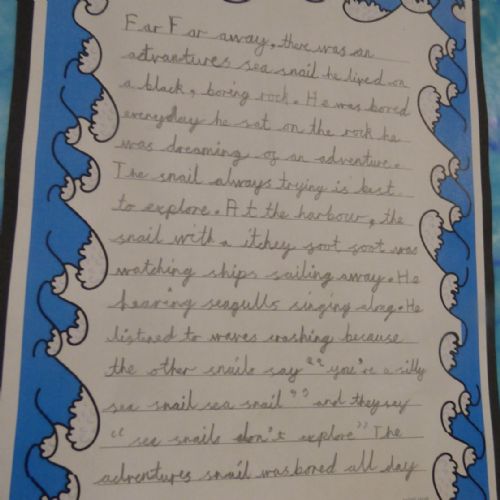 Far Far away, there was an
advantures sea snail he lived on
a black, boring rock. He was bored
everyday he sat on the rock he
was dreaming of an adventure.
The snail always trying is best
to explore. At the harbour, the
snail with a itchey foot foot was
watching ships sailing away. He
hearing seagulls singing along. He
listened to waves crashing because
the other snails say "you're a silly
sea snail sea snail" and they say
"sea snails don't explore" The
adventures snail was bored all day